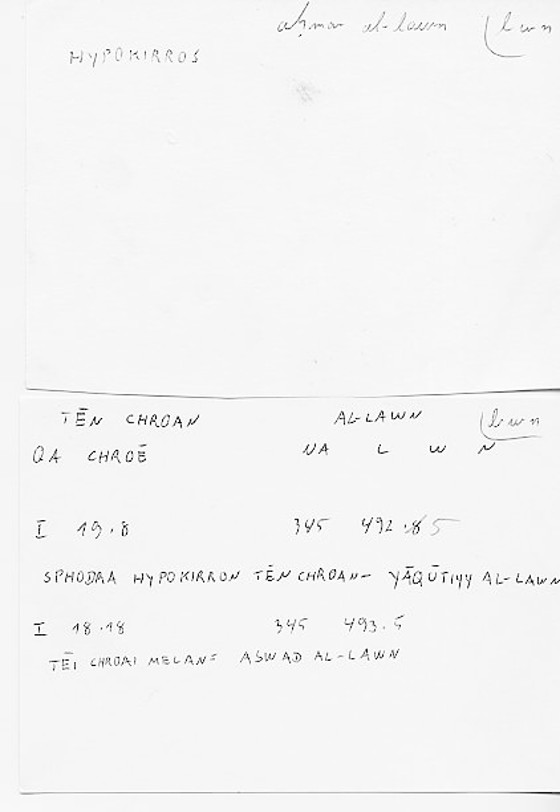 aḥmar al-lawn lwn
HYPOKIRROS
TĒN CHROAN AL-LAWN lwn
QA CHROĒ NA L W N
I 19.8 345 492.5
SPHODRA HYPOKIRRON TĒN CHROAN- YĀQŪTIYY AL-LAWN
I 18.18 345 493.5
TĒI CHROAI MELAN= ASWAD AL-LAWN